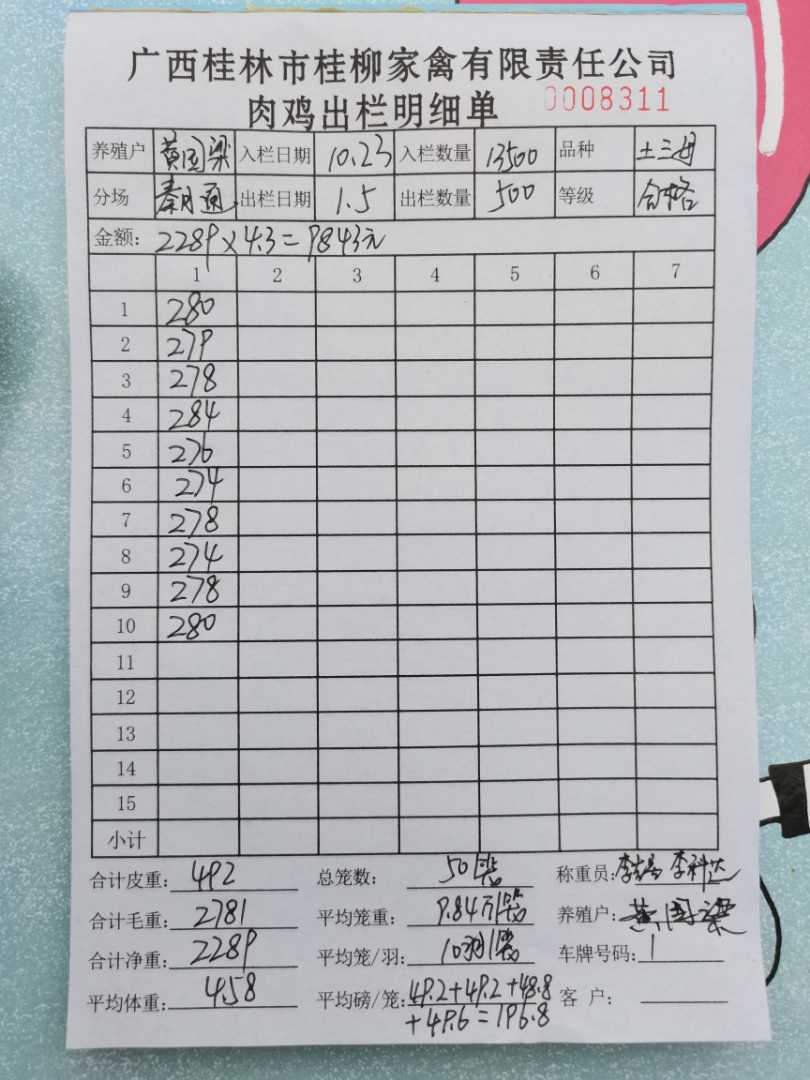 广西桂林市桂柳家禽有限责任公司
肉鸡出栏明细单 0008311
养殖户 黄国梁 入栏日期 10.23 入栏数量 13500 品种 土三母
分场 秦月通 出栏日期 1.5 出栏数量 500 等级 合格
金额: 2289×4.3=9843元
1 2 3 4 5 6 7
1 280
2 279
3 278
4 284
5 276
6 274
7 278
8 274
9 278
10 280
11
12
13
14
15
小计
合计皮重: 492 总笼数: 50笼 称重员: 李 李科达
合计毛重: 2781 平均笼重: 9.84斤/笼 养殖户: 黄国梁
合计净重: 2289 平均笼/羽: 10羽/笼 车牌号码:
平均体重: 4.58 平均磅/笼: 49.2+49.2+48.8 客 户:
+49.6=196.8